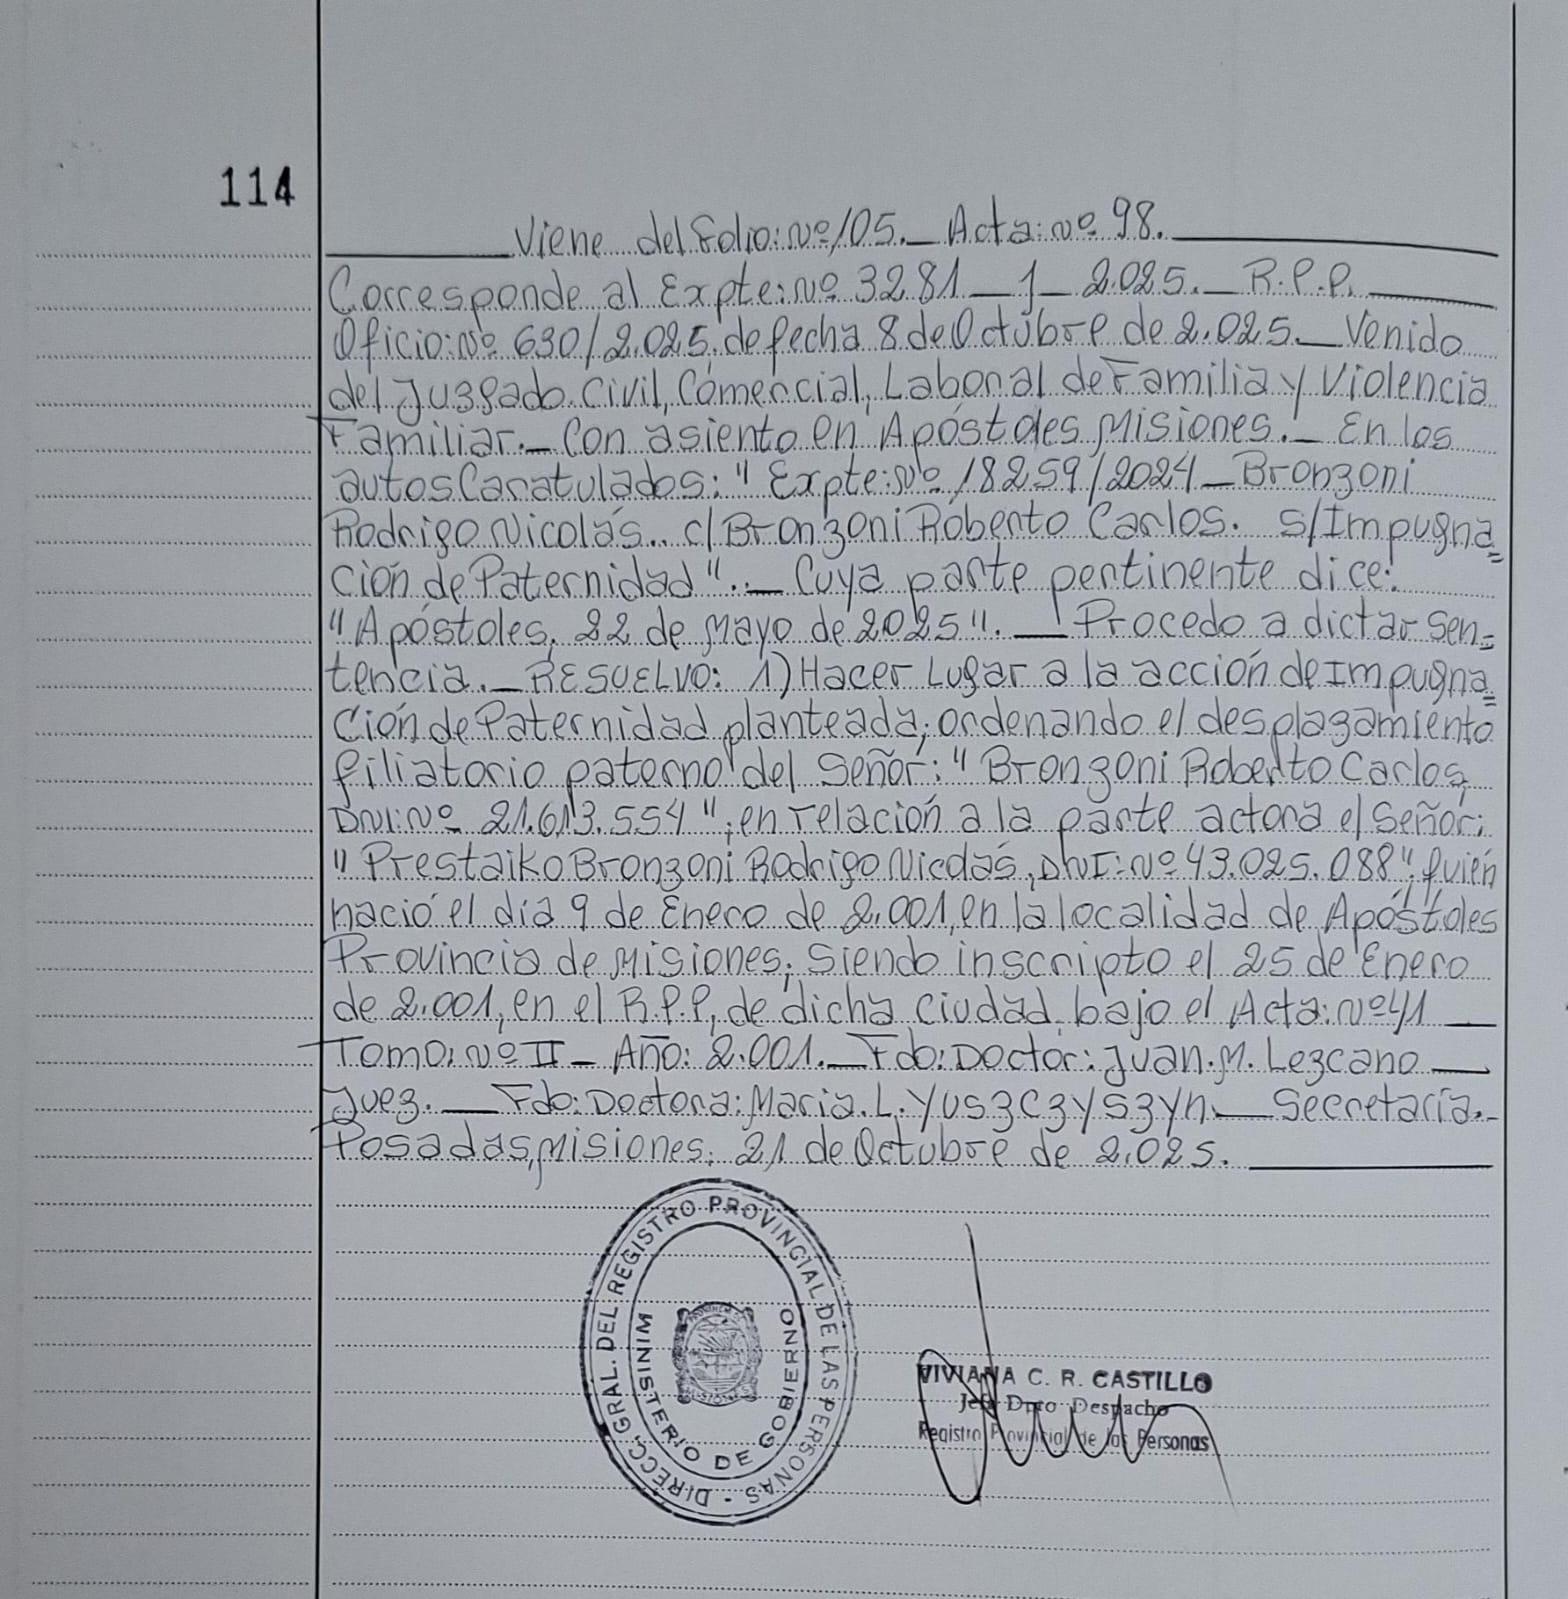 114
Viene del Folio: Nº 105._ Acta: Nº 98.
Corresponde al Expte: Nº 3281_1_2.025._ R.P.P.
Oficio: Nº 630/2.025, de fecha 8 de Octubre de 2.025._ Venido
del Juzgado Civil, Comercial, Laboral de Familia y Violencia
Familiar._ Con asiento en Apóstoles Misiones._ En los
autos Caratulados: "Expte: Nº 18259/2024_ Bronzoni
Rodrigo Nicolás.. c/ Bronzoni Roberto Carlos. s/Impugna=
ción de Paternidad"._ Cuya parte pertinente dice:
"Apóstoles, 22 de Mayo de 2025"._ Procedo a dictar Sen=
tencia._ RESUELVO: 1) Hacer Lugar a la acción de Impugna=
ción de Paternidad planteada; ordenando el desplazamiento
filiatorio paterno del Señor: "Bronzoni Roberto Carlos,
DNI: Nº 21.613.554"; en relación a la parte actora el Señor:
"Prestaiko Bronzoni Rodrigo Nicolás, DNI: Nº 43.025.088". Quién
nació el día 9 de Enero de 2.001, en la localidad de Apóstoles
Provincia de Misiones; Siendo inscripto el 25 de Enero
de 2.001, en el R.P.P, de dicha ciudad, bajo el Acta: Nº 41_
Tomo: Nº II_ Año: 2.001._ Fdo: Doctor: Juan. M. Lezcano_
Juez._ Fdo: Doctora: Maria. L. Yuszczyszyn_ Secretaría._
Posadas, Misiones, 21 de Octubre de 2.025.
DIRECC. GRAL. DEL REGISTRO PROVINCIAL DE LAS PERSONAS -
MINISTERIO DE GOBIERNO
VIVIANA C. R. CASTILLO
Jefa Dpto Despacho
Registro Provincial de las Personas